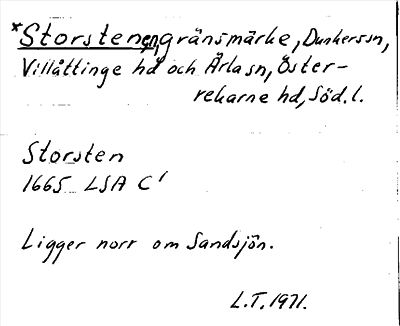 *Storstenen, gränsmärke, Dunkerssn,
Villåttinge hd och Ärlasn, Öster-
rekarne hd, Söd.l.
Storsten
1665 LSA C'
Ligger norr om Sandsjön.
L.T. 1971.